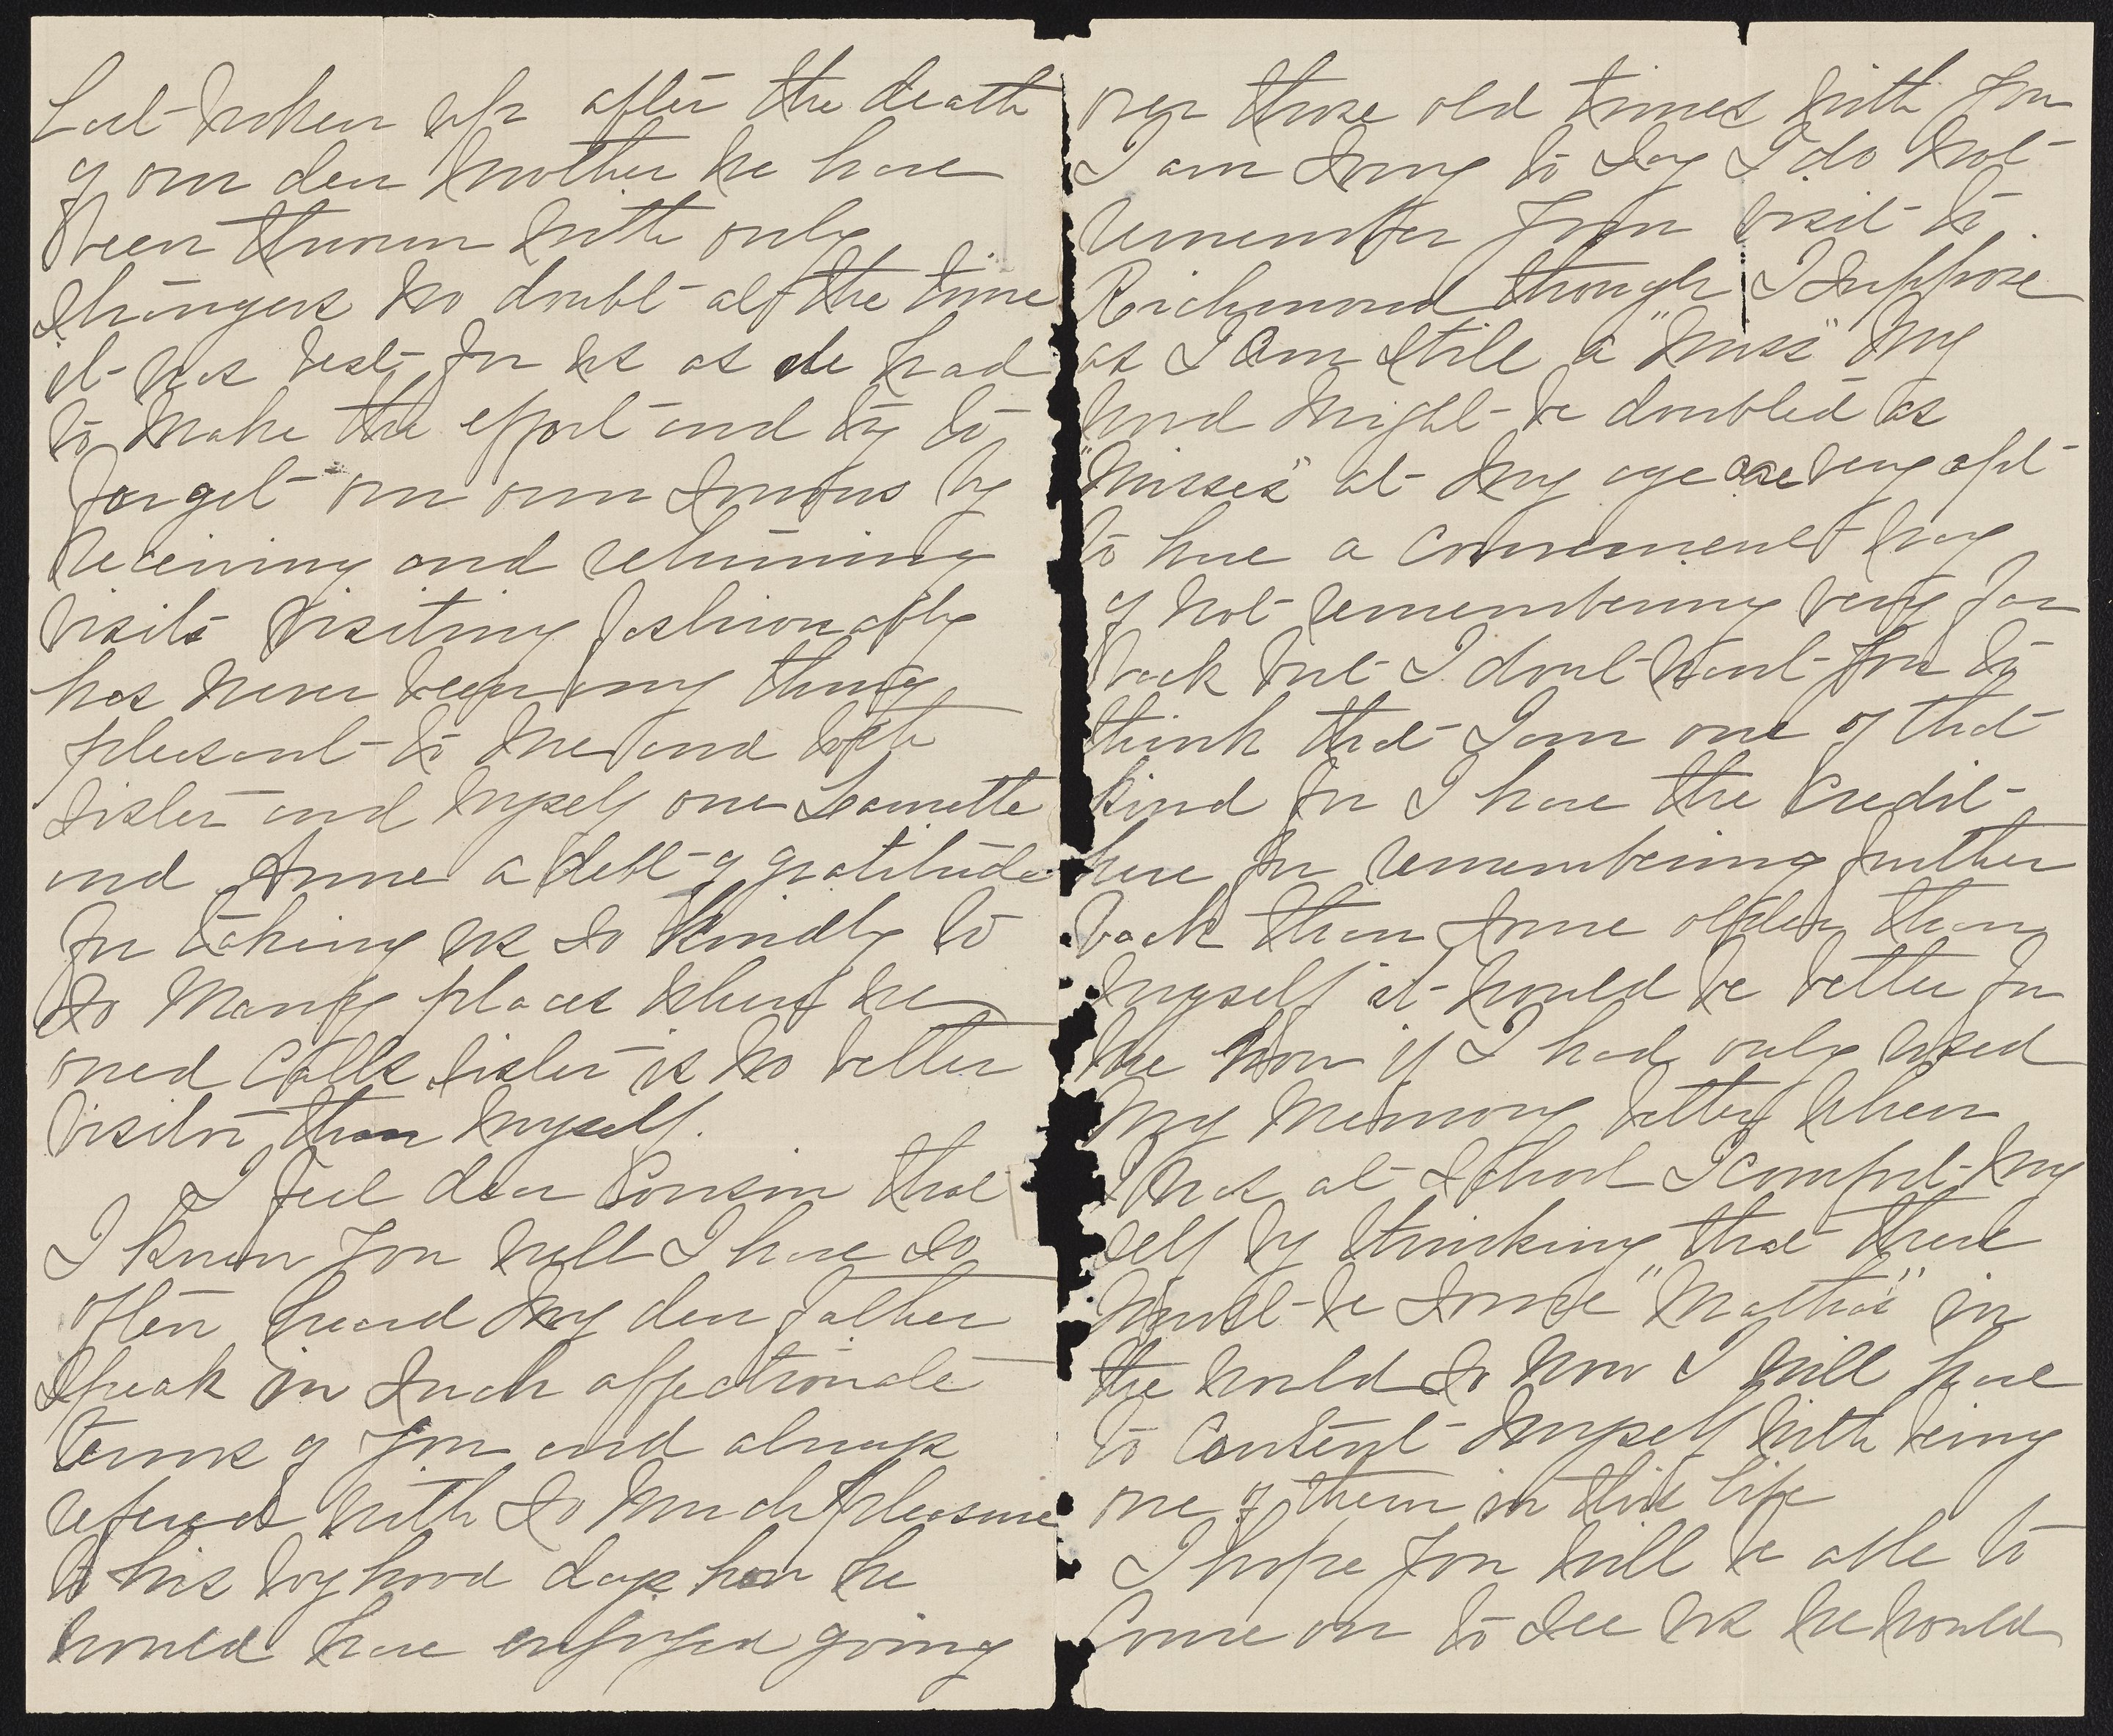 but broken up after the death
of our dear Mother we have
been thrown with only
strangers no doubt all the time
it was best for us as we had
to make the effort and try to
forget our own sorrows by
receiving and returning
visits Visiting fashionably
has never been any thing
pleasant to me and both
sister and myself owe Leanette
and Anne a debt of gratitude
for taking us so kindly to
so many places where we
owed calls sister is no better
visitor than myself.
I feel dear Cousin that
I know you well I have so
often heard my dear father
speak in such affectionate
terms of you and always
refered with so much pleasure
to his boyhood days how he
would have enjoyed going
over those old times with you
I am sorry to say I do not
remember your visit to
Richmond though I suppose
as I am still a "Miss" my
word might be doubted as
"Misses" at my age are very apt
to have a convenient way
of not remembering very far
back but I dont want you to
think that I am one of that
kind for I have the credit
here for remembering further
back than some older than
myself it would be better for
me now if I had only used
my memory better when
I was at school I comfort my
self by thinking that there
must be some "Marthas" in
the world so now I will have
to content myself with being
one of them in this life
I hope you will be able to
come on to see us we would